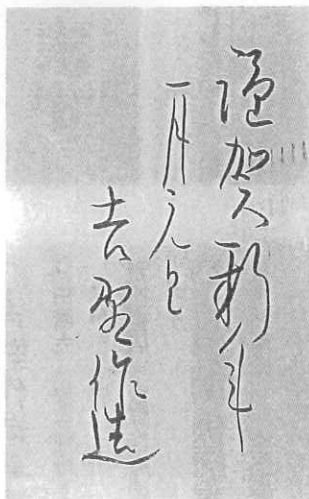 謹賀新年
一月元旦
吉野作造